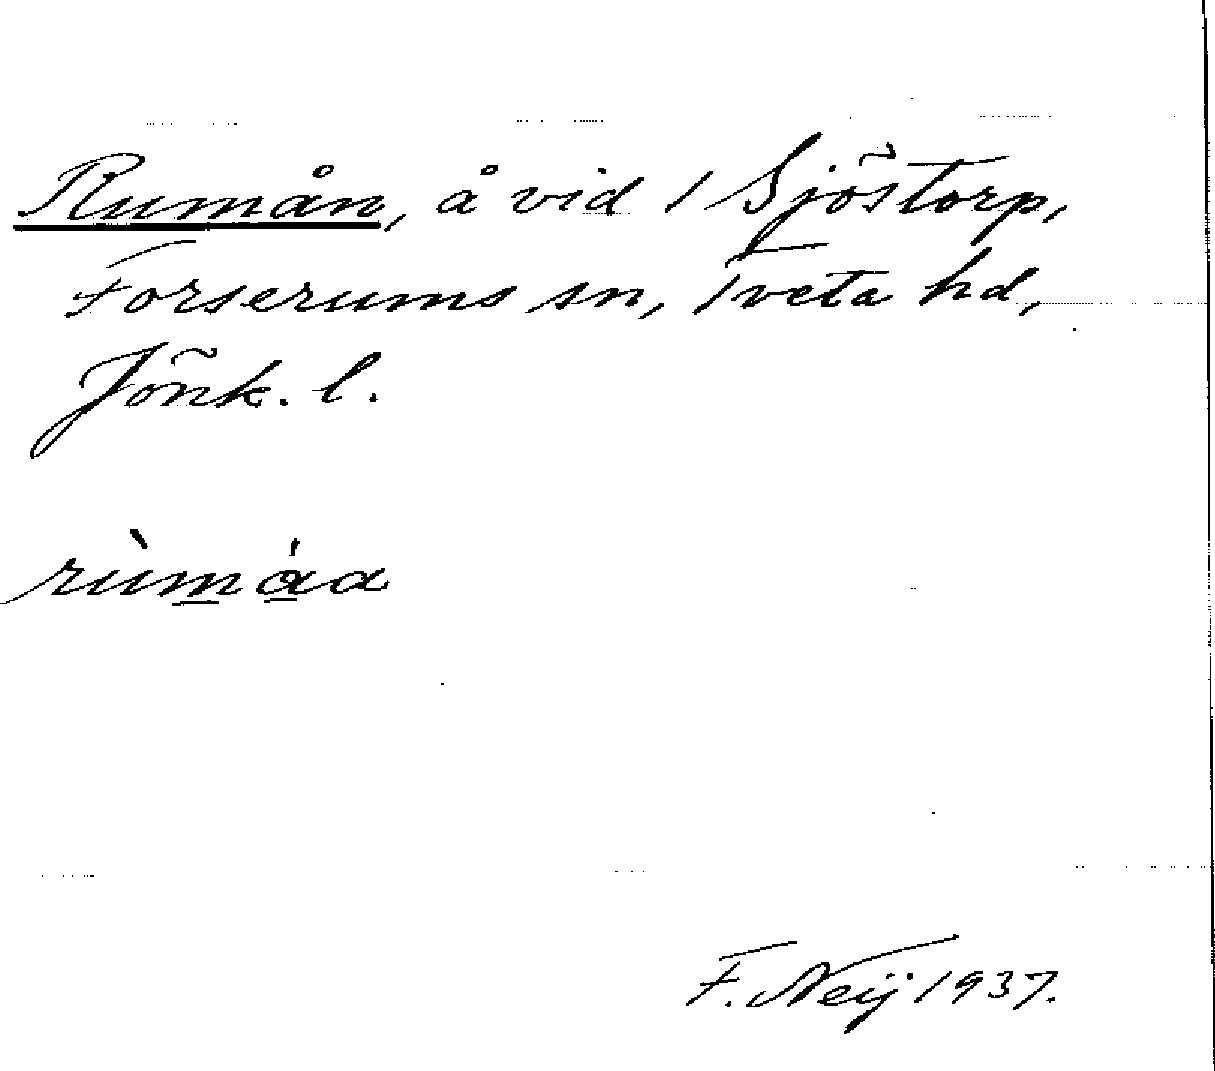 Rumån, å vid 1 Sjöstorp,
Forserums sn, Tveta hd,
Jönk. l.
rùmåa
F. Neij 1937.